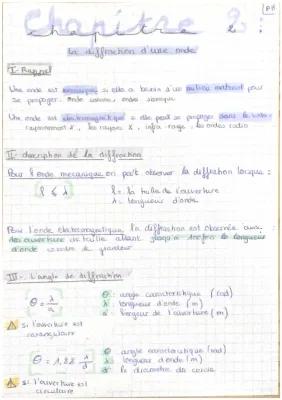 Chapitre 2 :
La diffraction d'une onde
I - Rappel
Une onde est mécanique si elle a besoin d'un milieu matériel pour
se propager : onde sonore, onde sismique
Une onde est électromagnétique si elle peut se propager dans le vide :
rayonnement X, les rayons γ, infra-rouge, les ondes radio
II - description de la diffraction
Pour l'onde mécanique on peut observer la diffraction lorsque :
l ≤ λ
l = la taille de l'ouverture
λ = longueur d'onde
Pour l'onde électromagnétique la diffraction est observée avec
des ouverture de taille allant jusqu'à 100 fois la longueur
d'onde
III - L'angle de diffraction
θ = λ/a
θ : angle caractéristique (rad)
λ : longueur d'onde (m)
a : largeur de l'ouverture (m)
si l'ouverture est
rectangulaire
θ = 1,22 λ/d
θ angle caractéristique (rad)
λ longueur d'onde (m)
d le diamètre du cercle
si l'ouverture est
circulaire